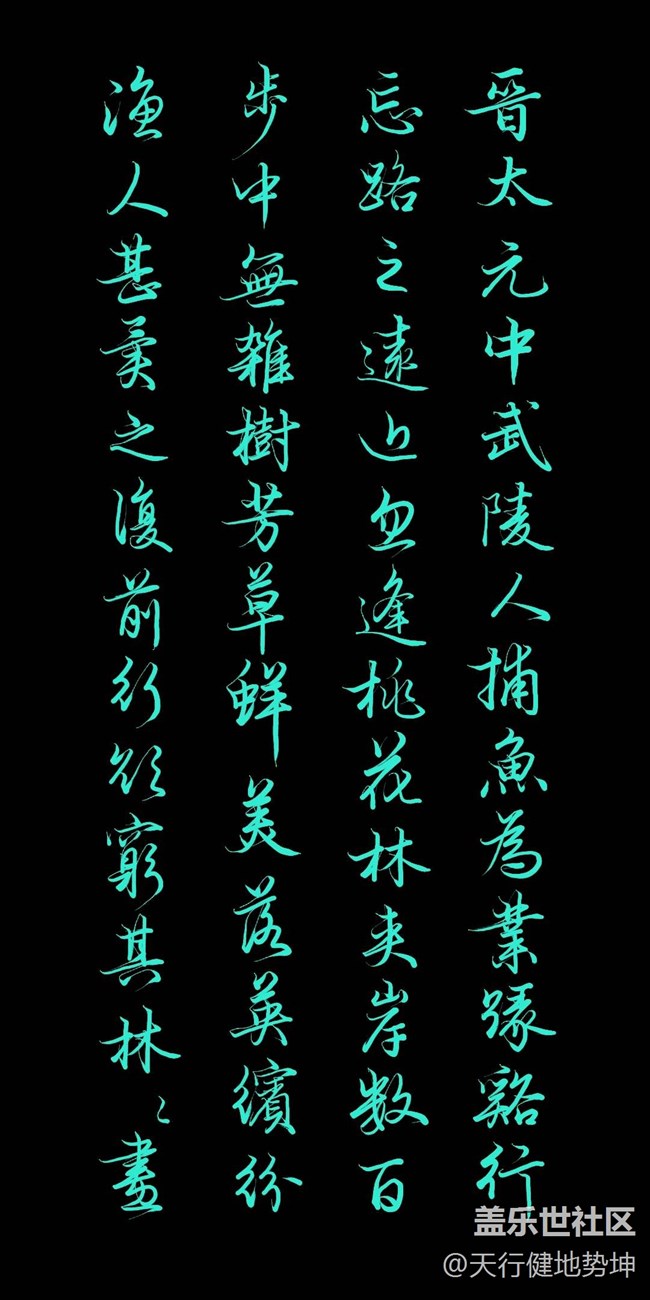 晉太元中武陵人捕魚為業緣谿行
忘路之遠近忽逢桃花林夾岸数百
步中無雜樹芳草鮮美落英繽紛
漁人甚異之復前行欲窮其林〻盡
盖乐世社区
@天行健地势坤